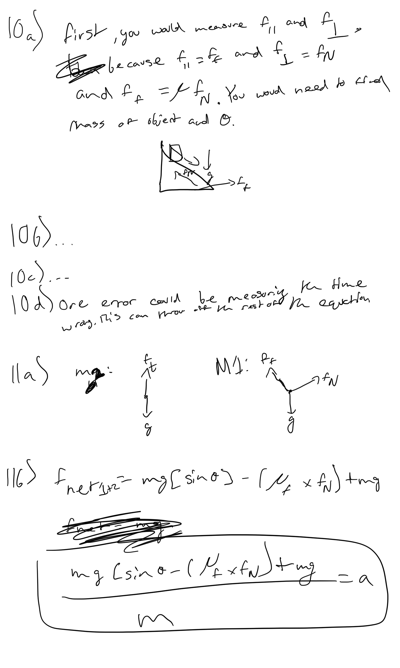 10a) First, you would measure f∥ and f⊥.
because f∥ = f_f and f⊥ = f_N
and f_f = μ f_N. You would need to find
mass of object and θ.
g
f_f
10b) ...
10c) ...
10d) One error could be measuring the time
wrong. This can throw off the rest of the equation
11a) m2: f_t M1: f_f
f_N
g g
11b) f_net 1+2 = mg[sinθ] - (μ_f × f_N) + mg
mg[sinθ - (μ_f × f_N) + mg = a
m